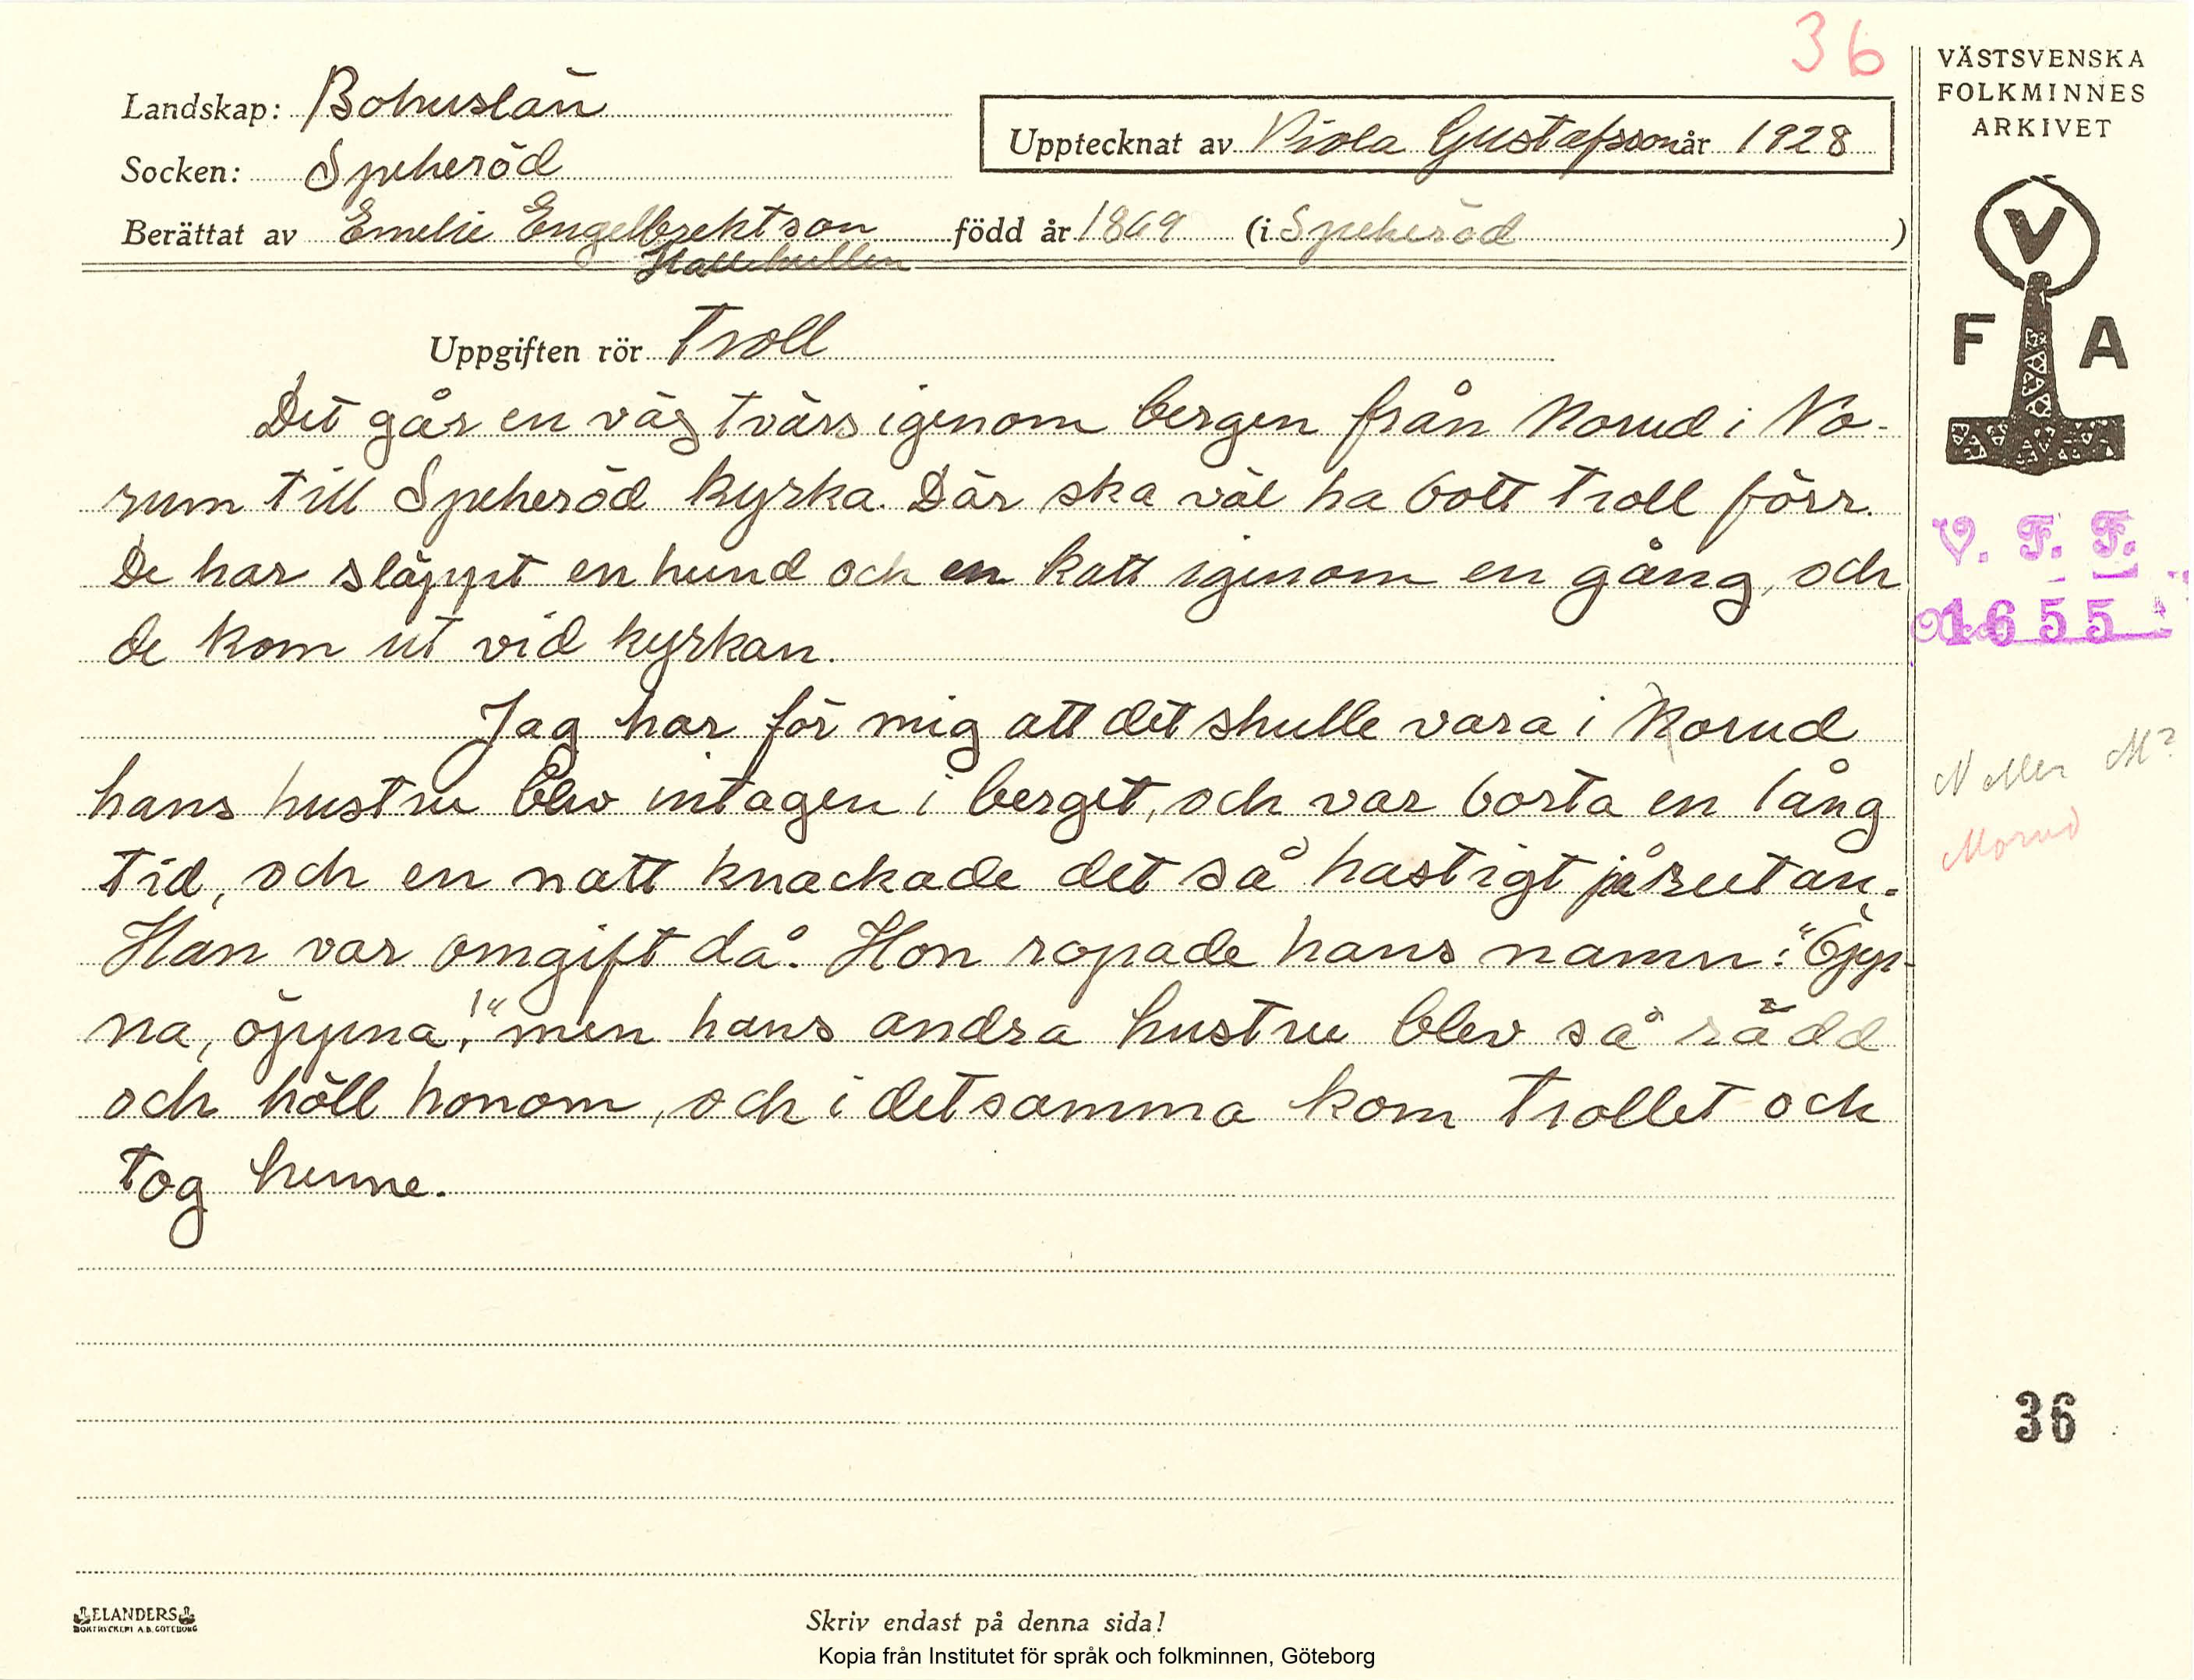 36
Landskap: Bohuslän
Socken: Speheröd
Berättat av Emelie Engelbrektson född år 1869 (i Speheröd)
Hallehullen
Upptecknat av Viola Gustafsson år 1928
Uppgiften rör Troll
Det går en väg tvärs igenom bergen från Norud i No-
rum till Speheröd kyrka. Där ska väl ha bott troll förr.
De har släppt en hund och en katt igenom en gång, och
de kom ut vid kyrkan.
Jag har för mig att det skulle vara i Norud
hans hustru blev intagen i berget, och var borta en lång
tid, och en natt knackade det så hastigt på rutan.
Han var omgift då. Hon ropade hans namn: "Öpp-
na, öppna!" men hans andra hustru blev så rädd
och höll honom, och i detsamma kom trollet och
tog henne.
VÄSTSVENSKA
FOLKMINNES
ARKIVET
V
F A
V. F. F.
1655
N eller M?
Morud
36
ELANDERS
BOKTRYCKERI A.B. GÖTEBORG
Skriv endast på denna sida!
Kopia från Institutet för språk och folkminnen, Göteborg